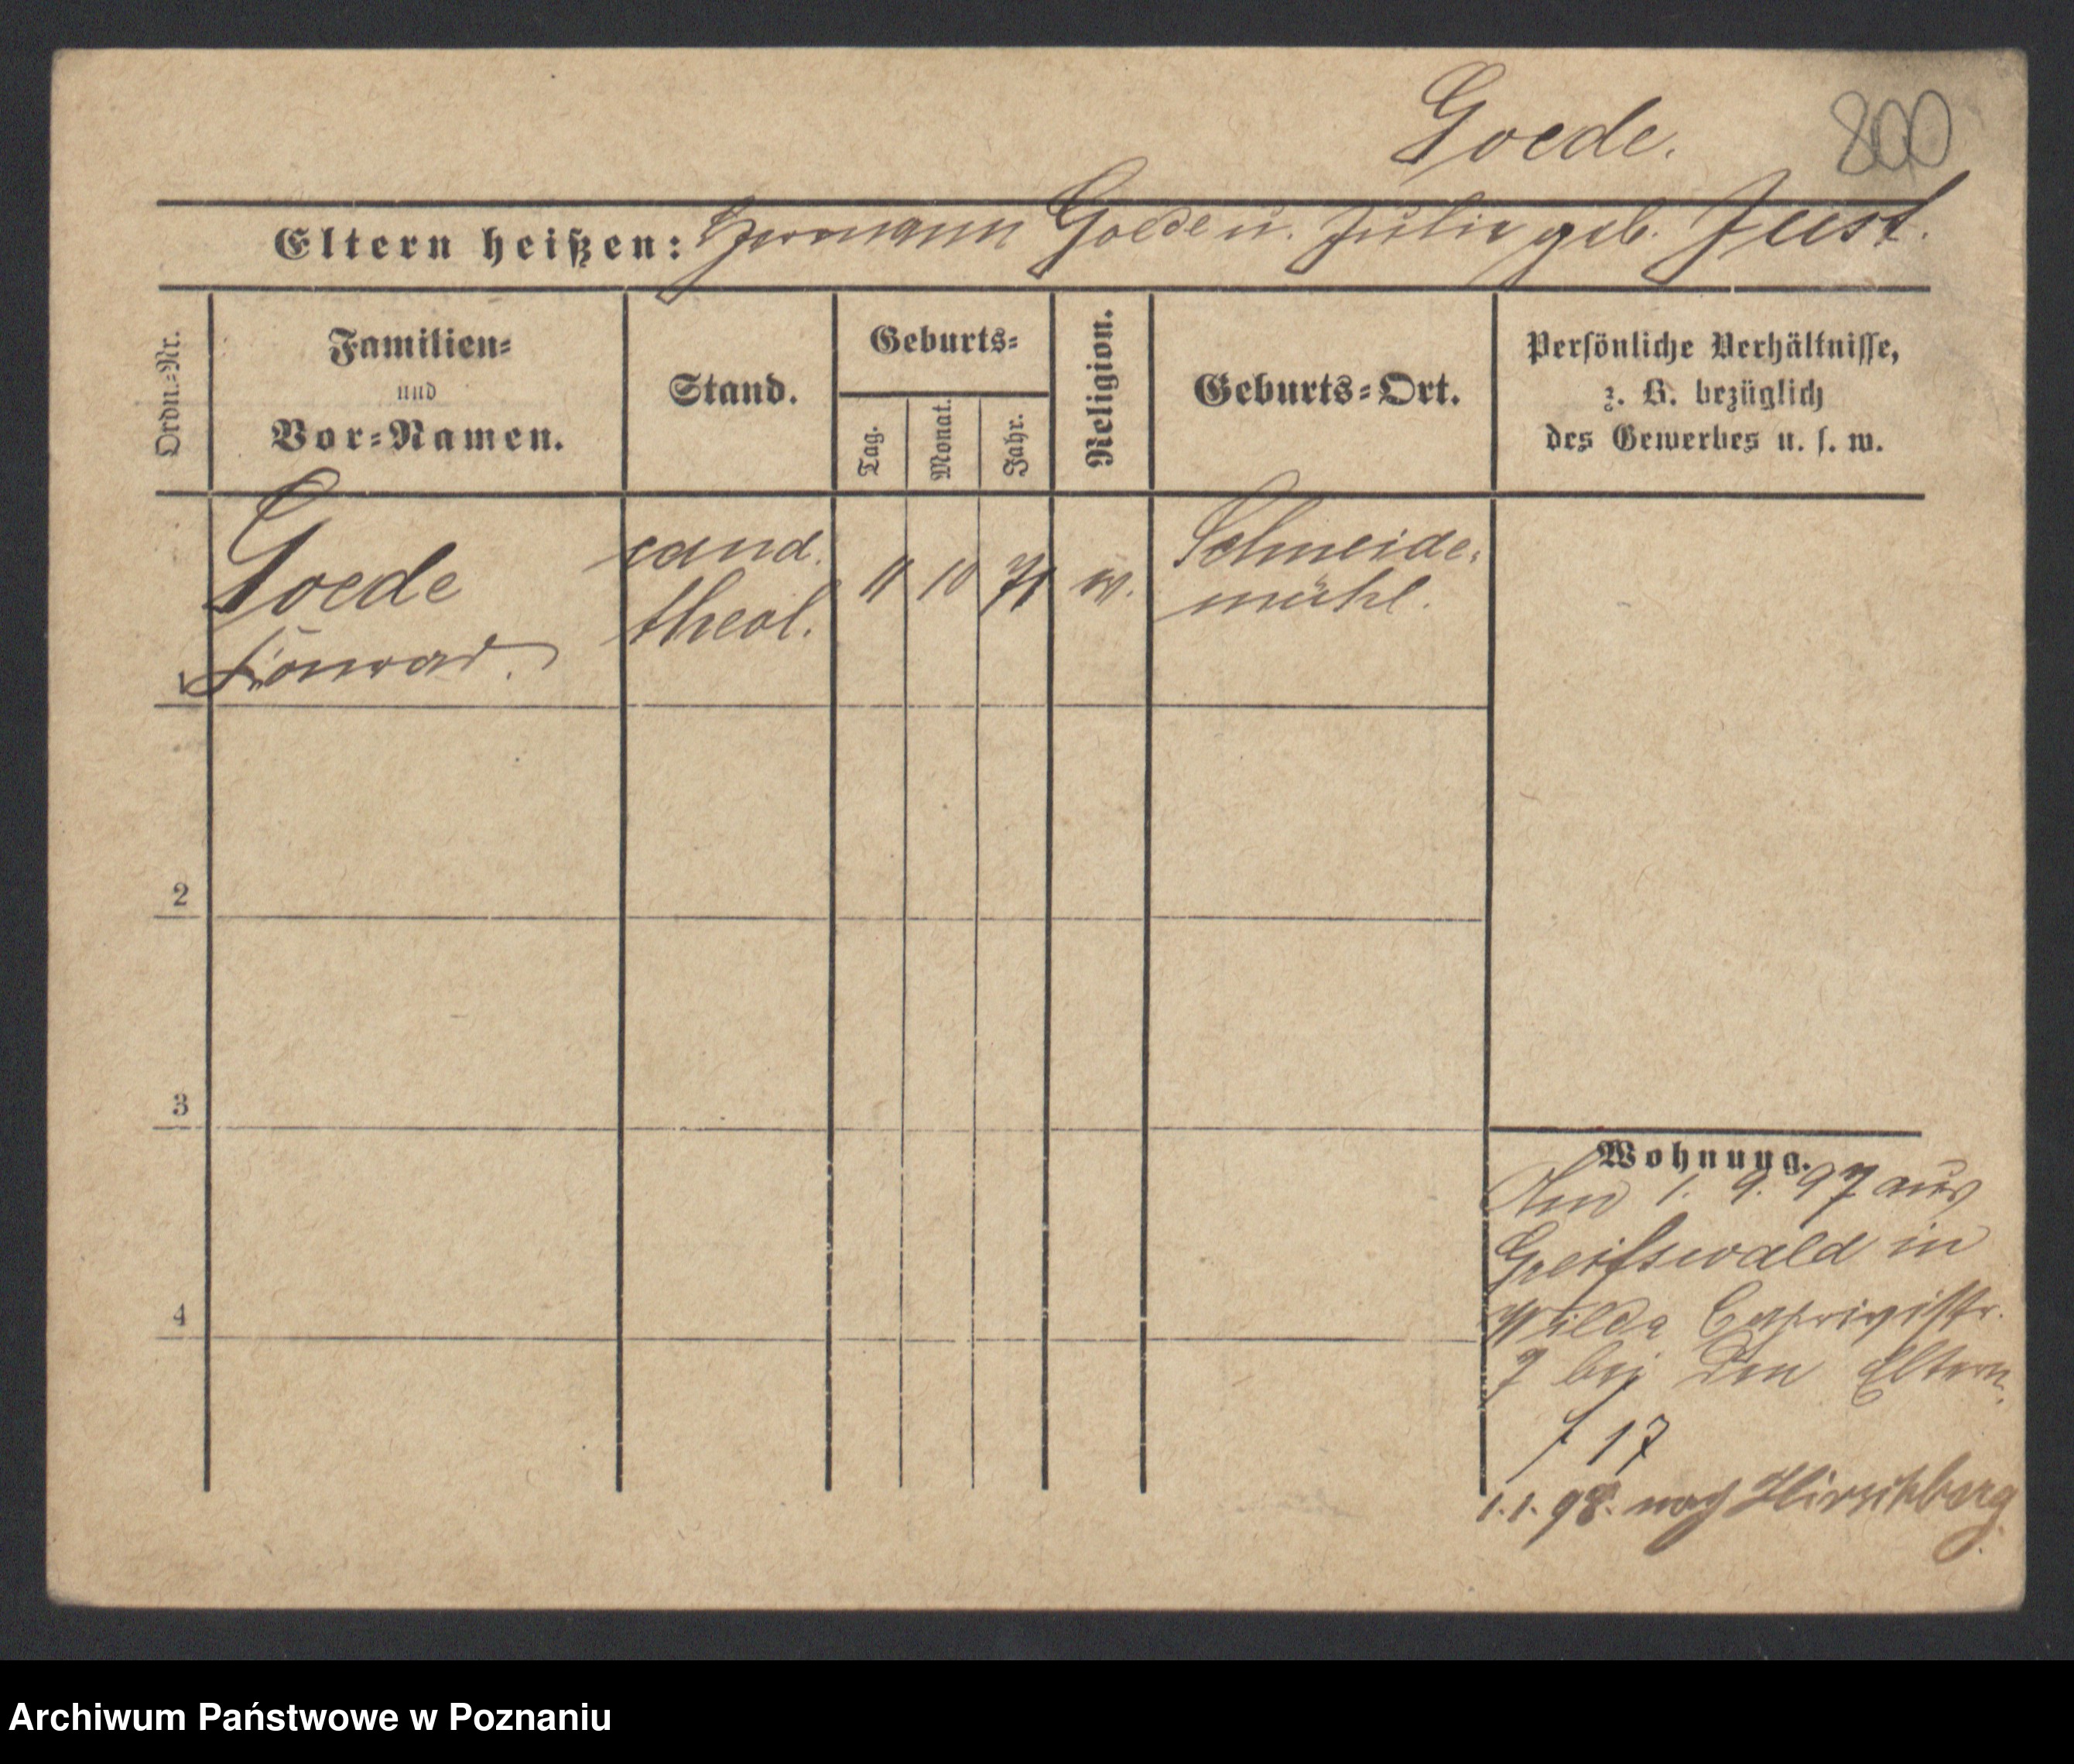 Goede.
800
Eltern heißen: Hermann Goede u. Julie geb. Just.
Ordn.=Nr.
Familien=
und
Vor=Namen.
Stand.
Geburts=
Tag.
Monat.
Jahr.
Religion.
Geburts=Ort.
Persönliche Verhältnisse,
z. B. bezüglich
des Gewerbes u. s. w.
Goede
Konrad.
cand.
theol.
11
10
71
ev.
Schneide-
mühl.
2
3
4
Wohnung.
1. 9. 97 aus
Greifswald in
Wilda Caprivistr.
7 bei den Eltern.
17
1.1.98. nach Hirschberg.
Archiwum Państwowe w Poznaniu